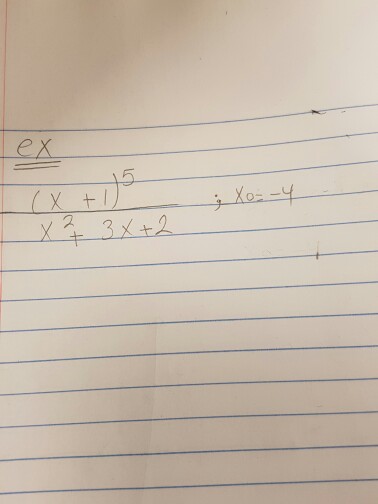 ex
(x + 1)^5
x^2 + 3x + 2 ; x0 = -4